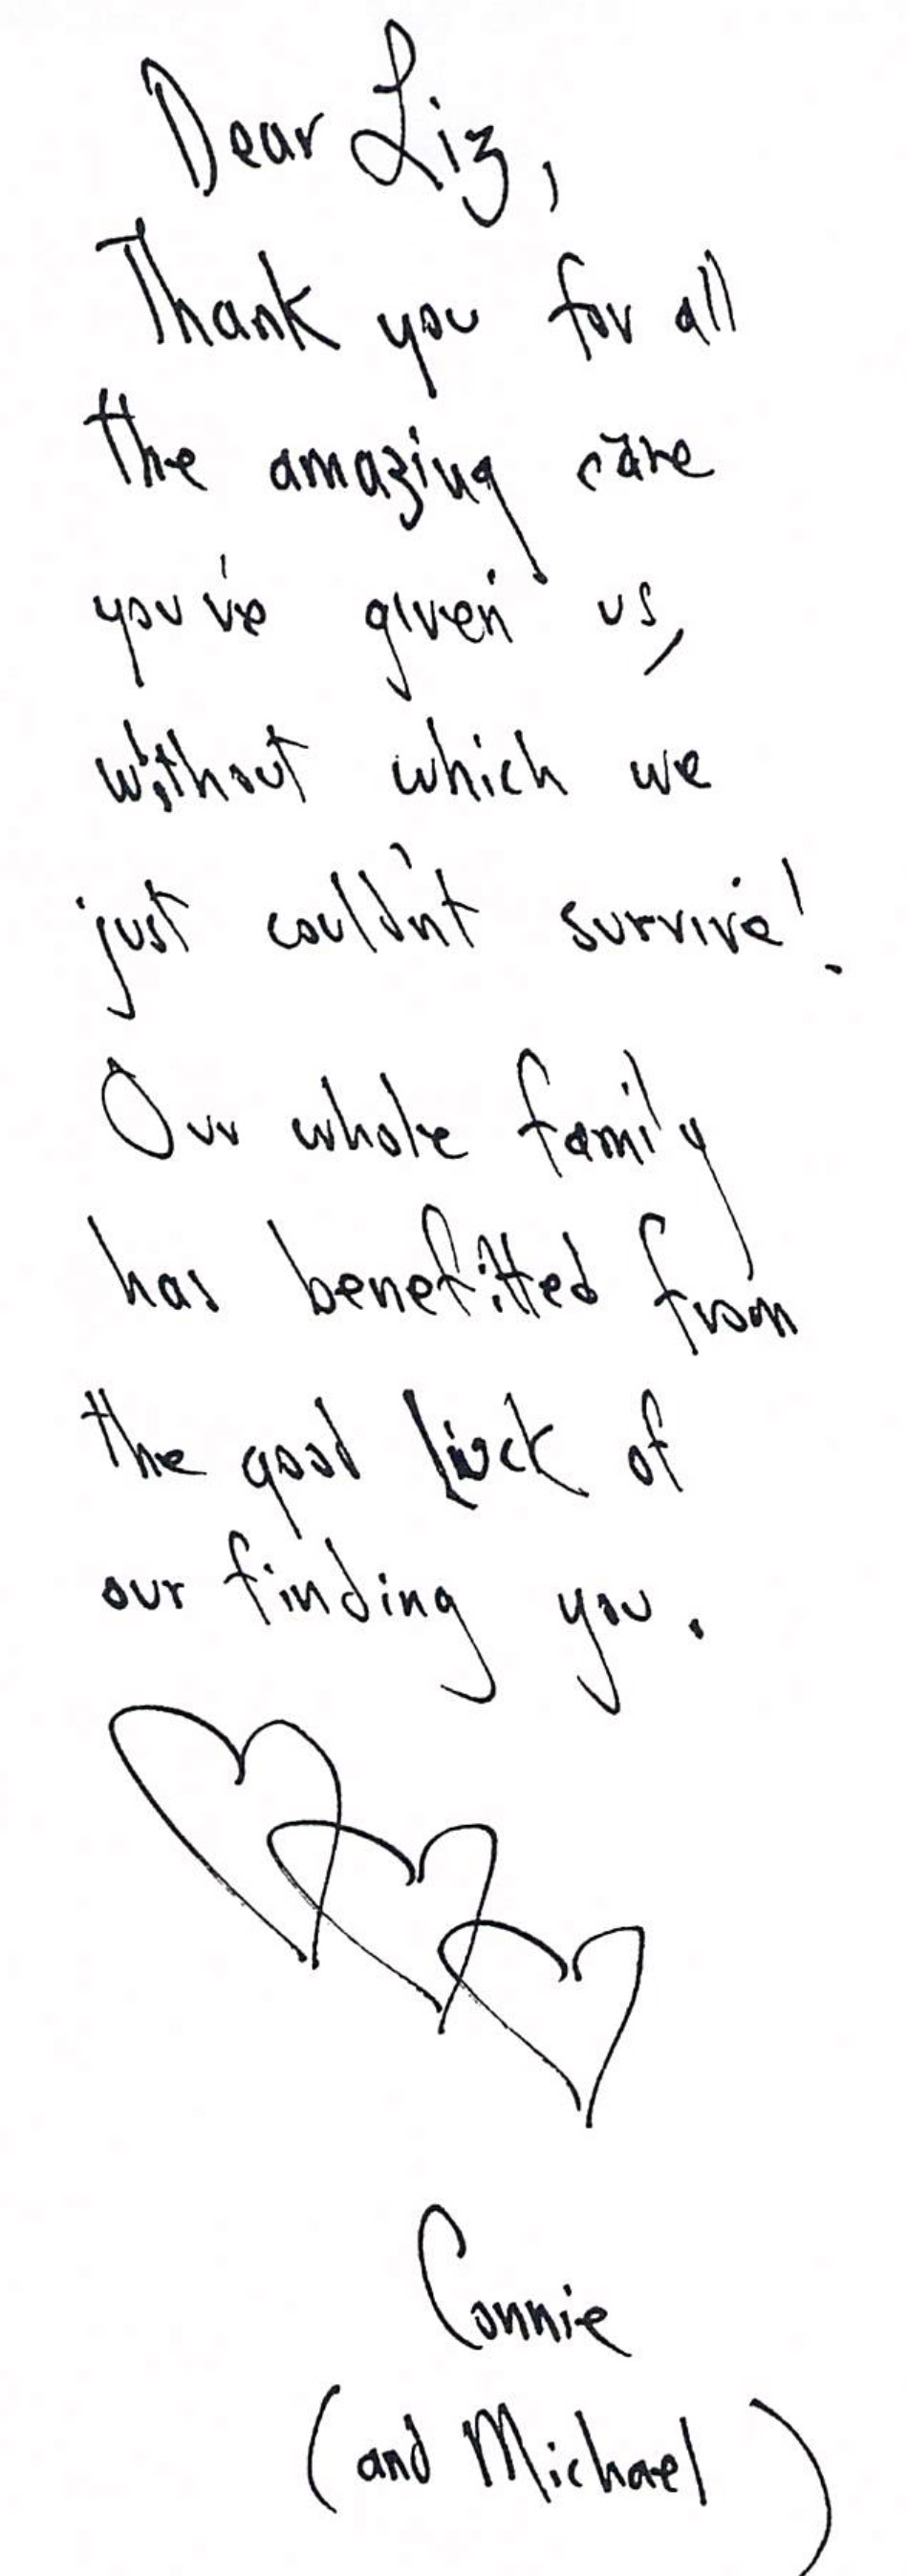 Dear Liz,
Thank you for all
the amazing care
you've given us,
without which we
just couldn't survive!
Our whole family
has benefitted from
the good luck of
our finding you.
Connie
(and Michael)